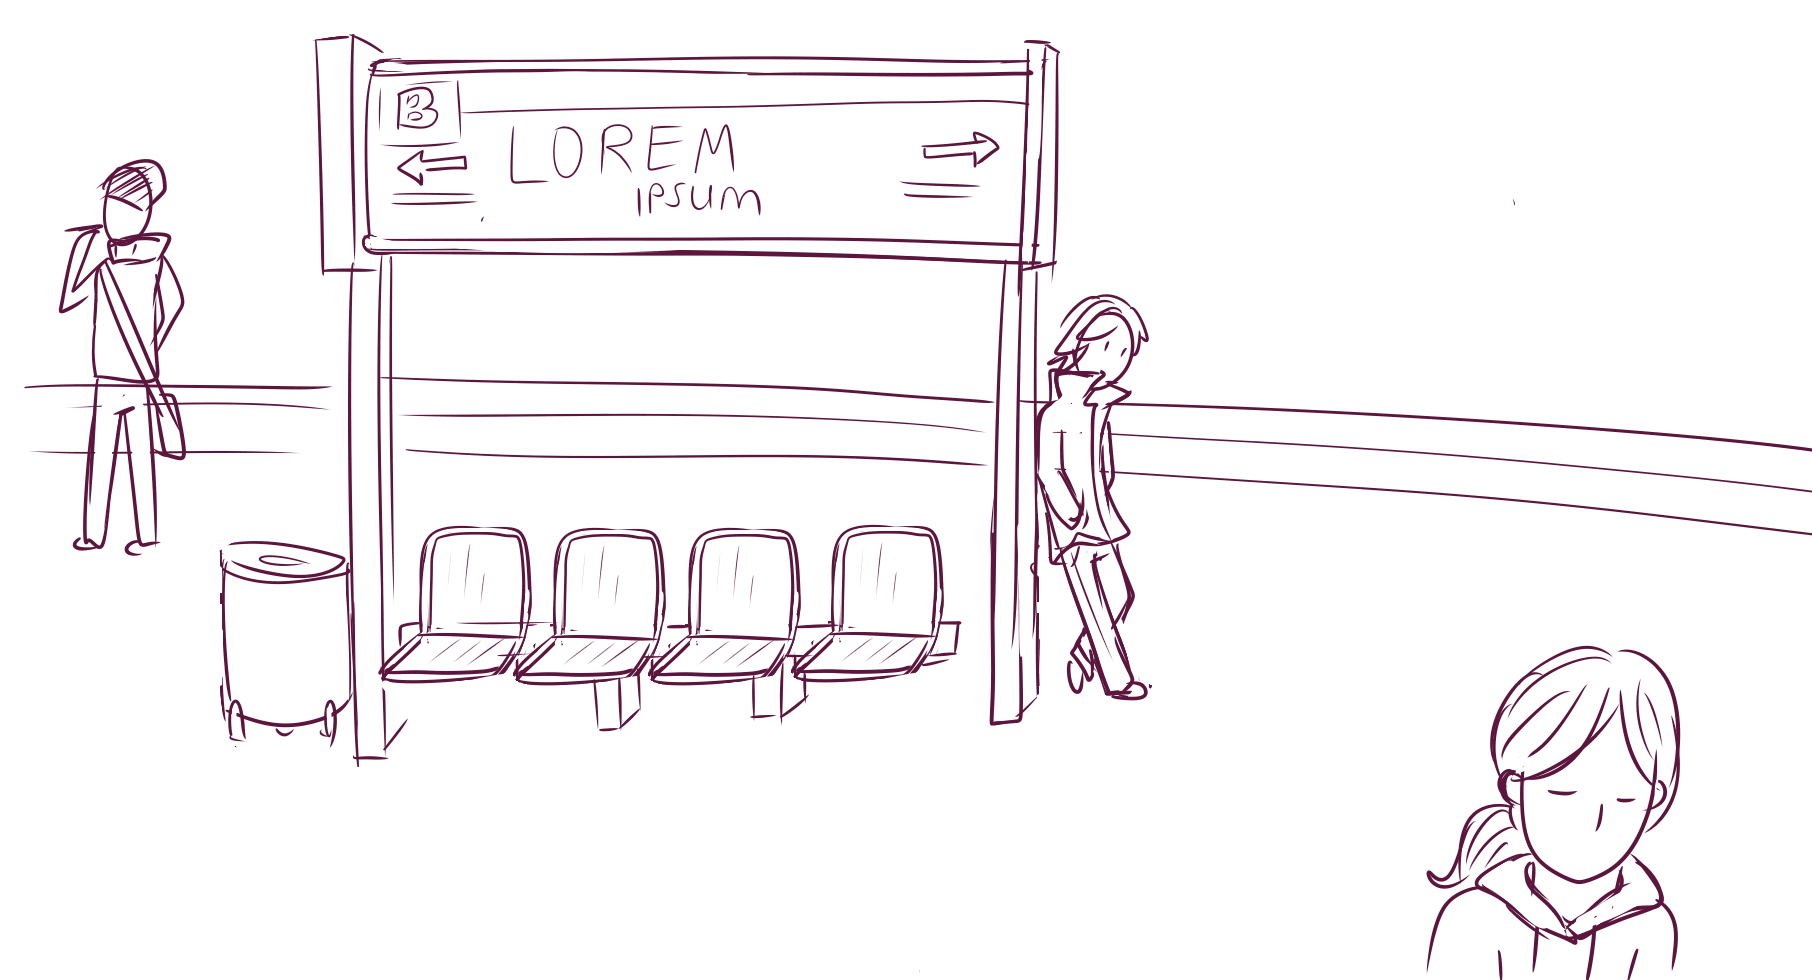 B
LOREM
IPSUM